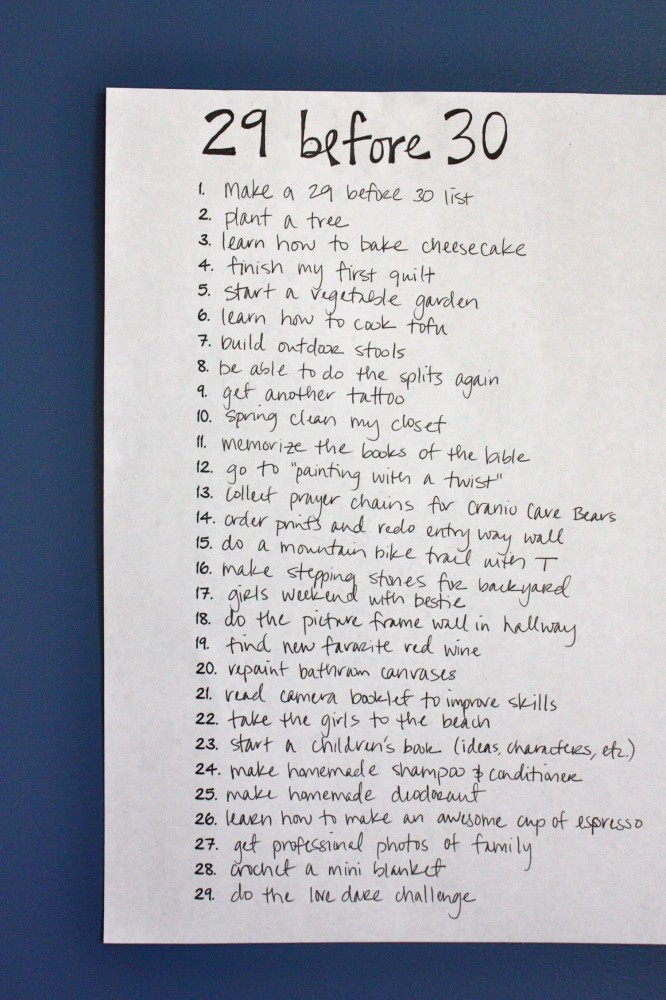 29 before 30
1. Make a 29 before 30 list
2. plant a tree
3. learn how to bake cheesecake
4. finish my first quilt
5. start a vegetable garden
6. learn how to cook tofu
7. build outdoor stools
8. be able to do the splits again
9. get another tattoo
10. spring clean my closet
11. memorize the books of the bible
12. go to "painting with a twist"
13. collect prayer chains for Cranio Care Bears
14. order prints and redo entry way wall
15. do a mountain bike trail with T
16. make stepping stones for backyard
17. girls weekend with bestie
18. do the picture frame wall in hallway
19. find new favorite red wine
20. repaint bathroom canvases
21. read camera booklet to improve skills
22. take the girls to the beach
23. start a children's book (ideas, characters, etc.)
24. make homemade shampoo & conditioner
25. make homemade deodorant
26. learn how to make an awesome cup of espresso
27. get professional photos of family
28. crochet a mini blanket
29. do the love dare challenge